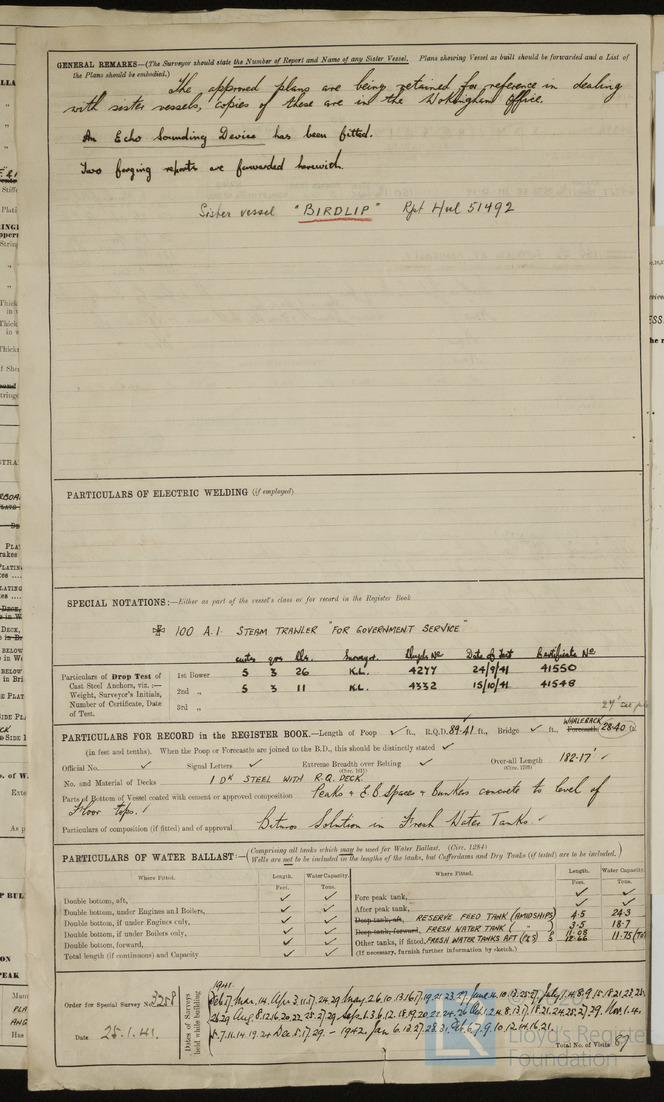 GENERAL REMARKS—(The Surveyor should state the Number of Report and Name of any Sister Vessel. Plans showing Vessel as built should be forwarded and a List of
the Plans should be embodied.)
The approved plans are being retained for reference in dealing
with sister vessels, copies of these are in the Wokingham Office.
An Echo Sounding Device has been fitted.
Two forging reports are forwarded herewith.
Sister vessel "BIRDLIP" Rpt Hul 51492
PARTICULARS OF ELECTRIC WELDING (if employed)
SPECIAL NOTATIONS:—Either as part of the vessel's class or for record in the Register Book
✠ 100 A.1. STEAM TRAWLER "FOR GOVERNMENT SERVICE"
cwts qrs lbs. Surveyor. Lloyds No Date of Test Certificate No
Particulars of Drop Test of Cast Steel Anchors, viz.:— Weight, Surveyor's Initials, Number of Certificate, Date of Test.
1st Bower 5 3 26 K.L. 4277 24/9/41 41550
2nd „ 5 3 11 K.L. 4332 15/10/41 41548
3rd „
PARTICULARS FOR RECORD in the REGISTER BOOK.—Length of Poop ✓ ft., R.Q.D. 89.41 ft., Bridge ✓ ft., WHALEBACK Forecastle 28.40 ft.
(in feet and tenths). When the Poop or Forecastle are joined to the B.D., this should be distinctly stated ✓
Official No. ✓ Signal Letters ✓ Extreme Breadth over Belting ✓ Over-all Length 182.17' ✓
No. and Material of Decks 1 DK STEEL WITH R.Q. DECK.
Parts of Bottom of Vessel coated with cement or approved composition Peaks & E.B. Spaces & Bunkers concrete to level of
Floor tops. ✓
Particulars of composition (if fitted) and of approval Bitros Solution in Fresh Water Tanks. ✓
PARTICULARS OF WATER BALLAST:—(Comprising all tanks which may be used for Water Ballast. (Circ. 1284)
Wells are not to be included in the lengths of the tanks, but Cofferdams and Dry Tanks (if tested) are to be included.)
Where Fitted. Length. Water Capacity. Where Fitted. Length. Water Capacity.
Feet. Tons. Feet. Tons.
Double bottom, aft, ✓ ✓ Fore peak tank, ✓ ✓
Double bottom, under Engines and Boilers, ✓ ✓ After peak tank, ✓ ✓
Double bottom, if under Engines only, ✓ ✓ Deep tank, aft, RESERVE FEED TANK (AMIDSHIPS) 4.5 24.3
Double bottom, if under Boilers only, ✓ ✓ Deep tank, forward, FRESH WATER TANK ( " ) 3.5 18.7
Double bottom, forward, ✓ ✓ Other tanks, if fitted, FRESH WATER TANKS AFT (P&S) 11.75
Total length (if continuous) and Capacity ✓ ✓ (If necessary, furnish further information by sketch.)
Order for Special Survey No. 3258
Date 25.1.41.
Dates of Surveys held while building
1941.
Total No. of Visits 87
Lloyd's Register
Foundation